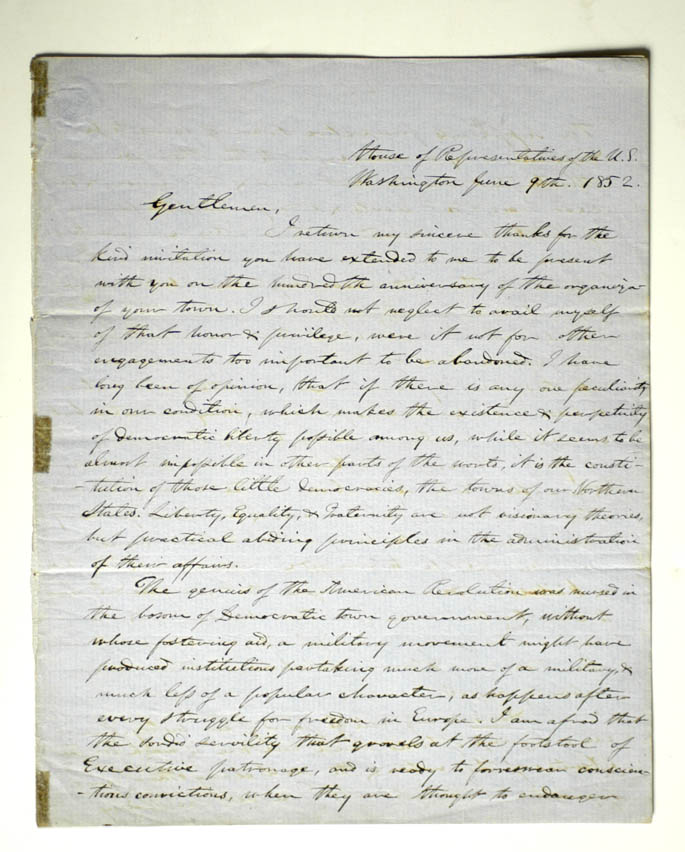 House of Representatives of the U.S.
Washington June 9th. 1852.
Gentlemen,
I return my sincere thanks for the
kind invitation you have extended to me to be present
with you on the hundredth anniversary of the organiza-
of your town. I should not neglect to avail myself
of that honor & privilege, were it not for other
engagements too important to be abandoned. I have
long been of opinion, that if there is any one peculiarity
in our condition, which makes the existence & perpetuity
of democratic liberty possible among us, while it seems to be
almost impossible in other parts of the world, it is the consti-
-tution of those little democracies, the towns of our Northern
States. Liberty, Equality, & Fraternity are not visionary theories,
but practical abiding principles in the administration
of their affairs.
The genius of the American Revolution was nursed in
the bosom of Democratic town government, without
whose fostering aid, a military movement might have
produced institutions partaking much more of a military, &
much less of a popular character, as happens after
every struggle for freedom in Europe. I am afraid that
the sordid servility that grovels at the footstool of
Executive patronage, and is ready to foreswear conscien-
-tious convictions, when they are thought to endanger